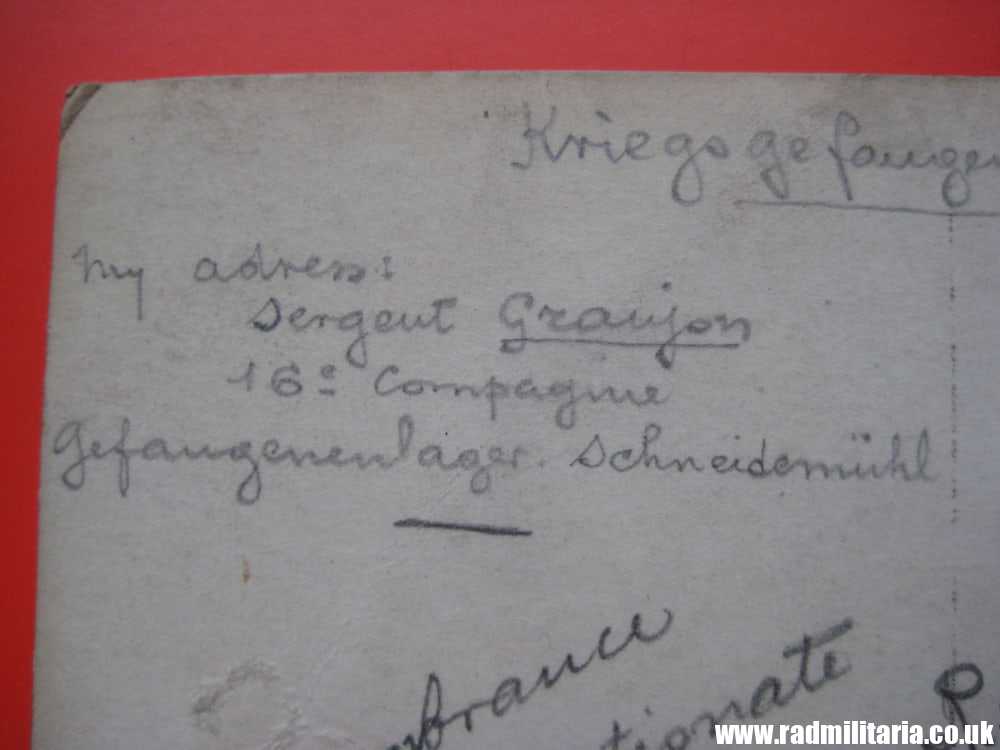 Kriegsgefangen
My adress:
Sergent Granjon
16e Compagnie
Gefangenenlager. Schneidemühl
mbrance
tionate
www.radmilitaria.co.uk